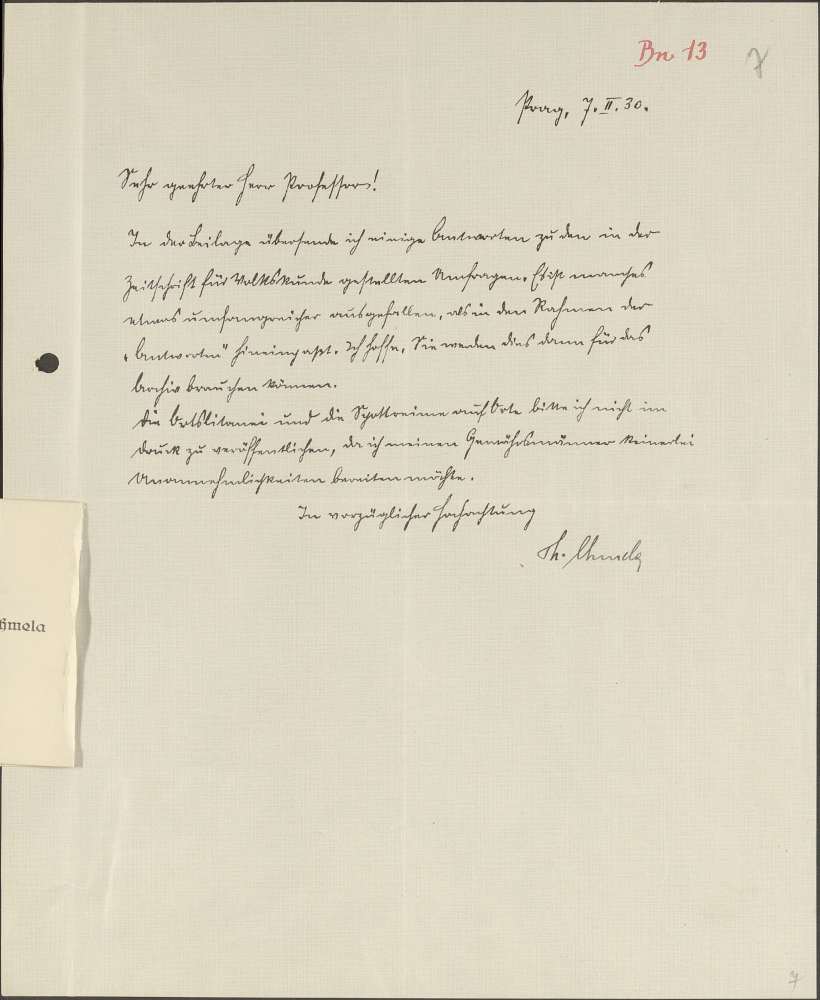 Bn 13
7
Prag, 7. II. 30.
Sehr geehrter Herr Professor!
In der Beilage übersende ich einige Antworten zu den in der
Zeitschrift für Volkskunde gestellten Umfragen. Es ist manches
etwas umfangreicher ausgefallen, als in den Rahmen der
„Antworten" hineinpaßt. Ich hoffe, Sie werden dies dann für das
Archiv brauchen können.
Die Ortslitanei und die Spottreime auf Orte bitte ich nicht im
Druck zu veröffentlichen, da ich meinen Gewährsmännern keinerlei
Unannehmlichkeiten bereiten möchte.
In vorzüglicher Hochachtung
Th. Chmela
hmela
7